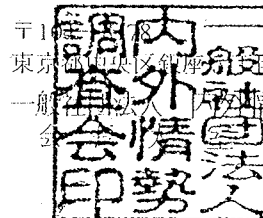 〒10 78
東京都中央区銀座
一般社団法人 内外
会
一般社団法人
内外情勢
調査会印